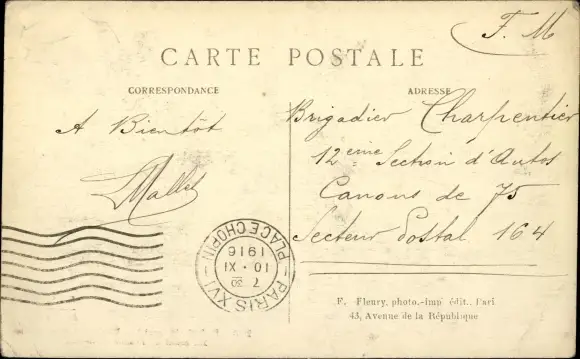 F. M
CARTE POSTALE
CORRESPONDANCE
ADRESSE
A Bientôt
Mallet
Brigadier Charpentier
12ème Section d'Autos
Canons de 75
Secteur Postal 164
PARIS XVI
PLACE CHOPIN
7 30
10 · XI
1916
F. Fleury, photo.-Imp. édit., Pari
43, Avenue de la République